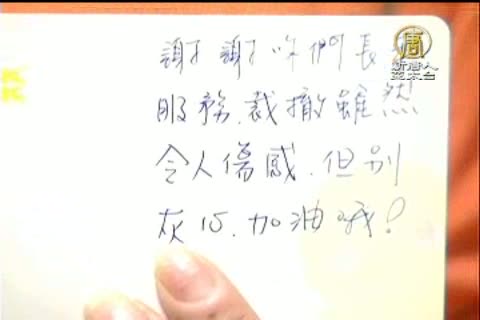 謝謝你們長
服務.裁撤雖然
令人傷感.但別
灰心.加油哦!
唐
新唐人
亞太台